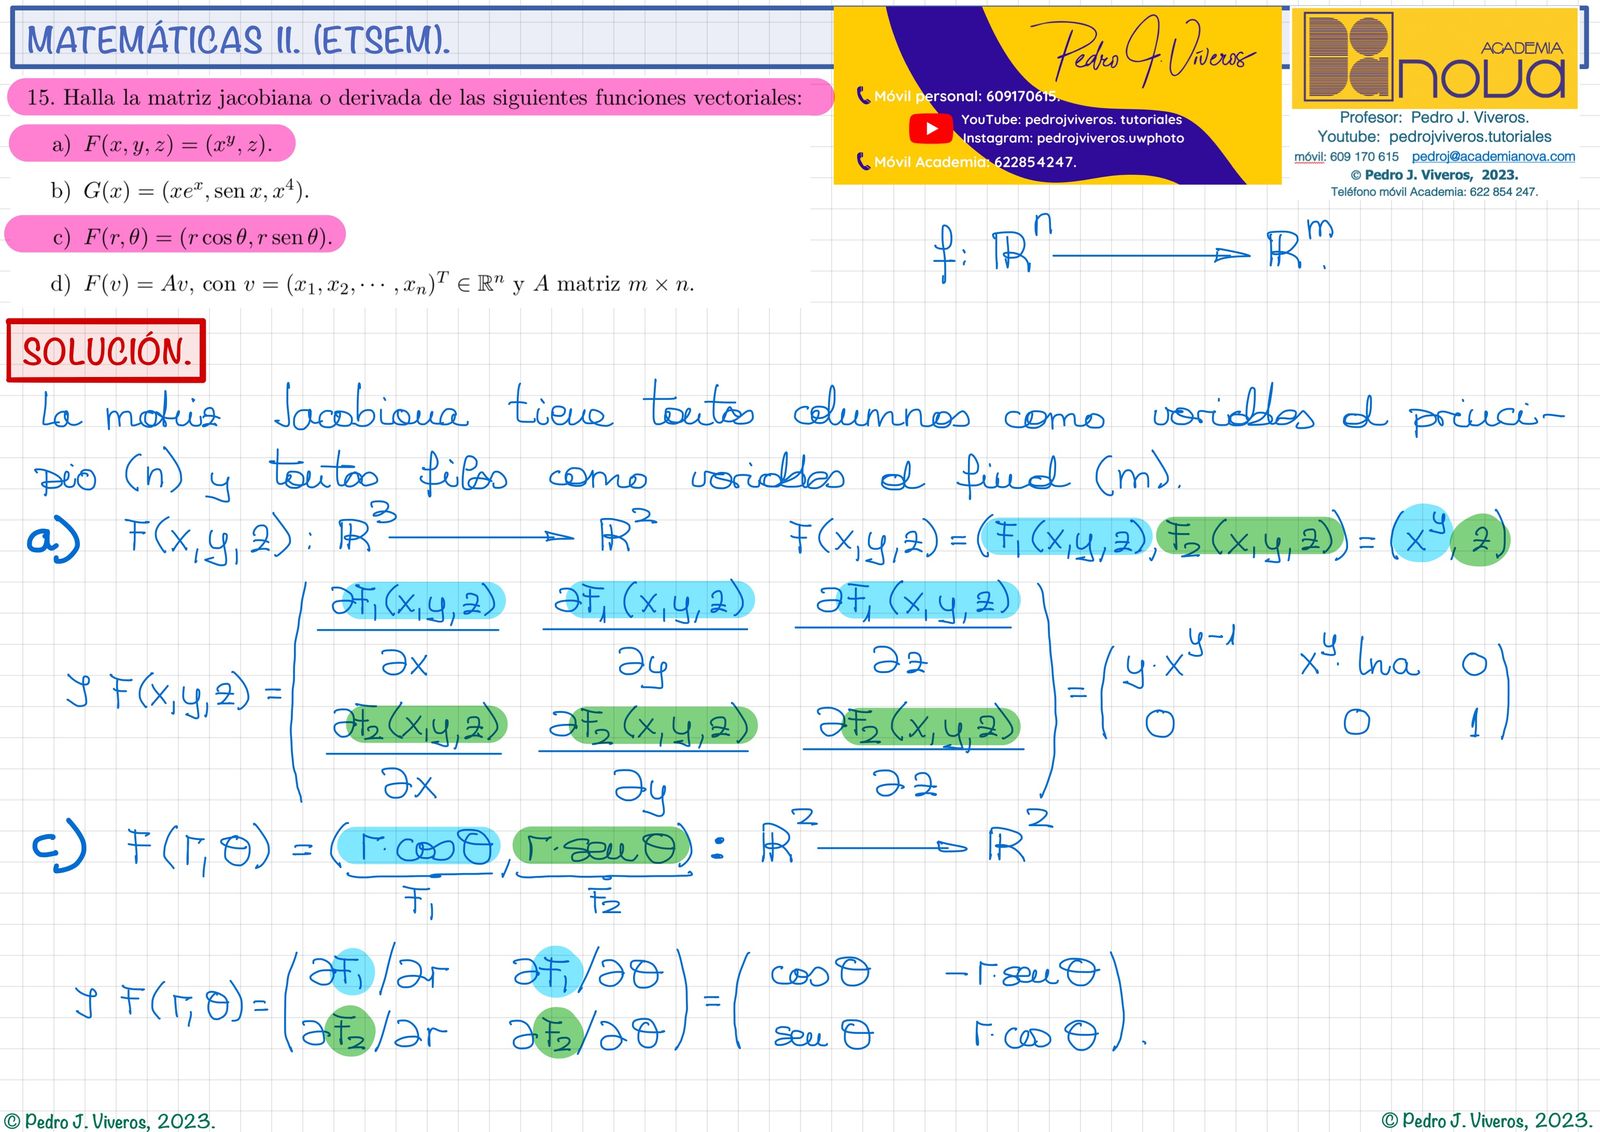 MATEMÁTICAS II. (ETSEM).
Pedro J. Viveros
Móvil personal: 609170615.
YouTube: pedrojviveros. tutoriales
Instagram: pedrojviveros.uwphoto
Móvil Academia: 622854247.
ACADEMIA
nova
Profesor: Pedro J. Viveros.
Youtube: pedrojviveros.tutoriales
móvil: 609 170 615 pedroj@academianova.com
© Pedro J. Viveros, 2023.
Teléfono móvil Academia: 622 854 247.
15. Halla la matriz jacobiana o derivada de las siguientes funciones vectoriales:
a) F(x, y, z) = (x^y, z).
b) G(x) = (xe^x, sen x, x^4).
c) F(r, θ) = (r cos θ, r sen θ).
d) F(v) = Av, con v = (x₁, x₂, ··· , xₙ)^T ∈ ℝ^n y A matriz m × n.
f: ℝ^n ⟶ ℝ^m.
SOLUCIÓN.
La matriz Jacobiana tiene tantas columnas como variables al princi-
pio (n) y tantas filas como variables al final (m).
a) F(x,y,z) : ℝ^3 ⟶ ℝ^2 F(x,y,z) = (F₁(x,y,z), F₂(x,y,z)) = (x^y, z)
∂F₁(x,y,z) ∂F₁(x,y,z) ∂F₁(x,y,z)
∂x ∂y ∂z
J F(x,y,z) = = ( y·x^{y-1} x^y·lna 0
∂F₂(x,y,z) ∂F₂(x,y,z) ∂F₂(x,y,z) 0 0 1 )
∂x ∂y ∂z
c) F(r,θ) = (r·cosθ, r·senθ) : ℝ^2 ⟶ ℝ^2
F₁ F₂
∂F₁/∂r ∂F₁/∂θ cosθ -r·senθ
J F(r,θ) = =
∂F₂/∂r ∂F₂/∂θ senθ r·cosθ .
© Pedro J. Viveros, 2023.
© Pedro J. Viveros, 2023.